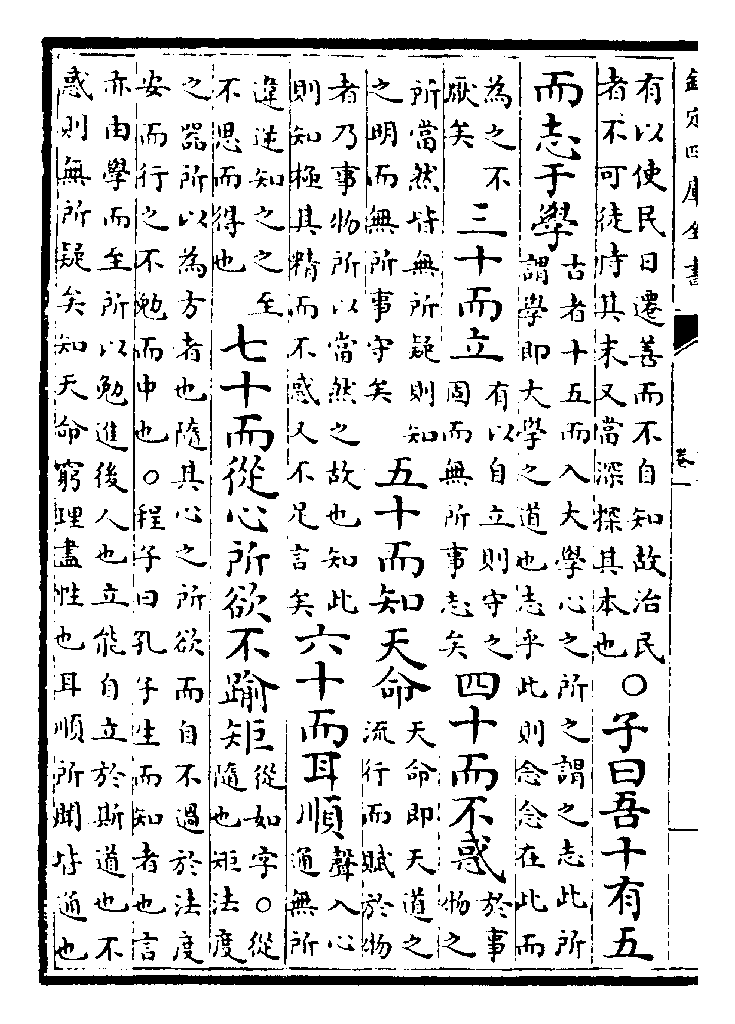 欽定四庫全書
卷
有以使民日遷善而不自知故治民
者不可徒恃其末又當深探其本也
○子曰吾十有五
而志于學
古者十五而入大學心之所之謂之志此所
謂學即大學之道也志乎此則念念在此而
為之不
厭矣
三十而立
有以自立則守之
固而無所事志矣
四十而不惑
於事
物之
所當然皆無所疑則知
之明而無所事守矣
五十而知天命
天命即天道之
流行而賦於物
者乃事物所以當然之故也知此
則知極其精而不惑又不足言矣
六十而耳順
聲入心
通無所
違逆知之之至
不思而得也
七十而從心所欲不踰矩
從如字○從
隨也矩法度
之器所以為方者也隨其心之所欲而自不過於法度
安而行之不勉而中也○程子曰孔子生而知者也言
亦由學而至所以勉進後人也立能自立於斯道也不
惑則無所疑矣知天命窮理盡性也耳順所聞皆通也